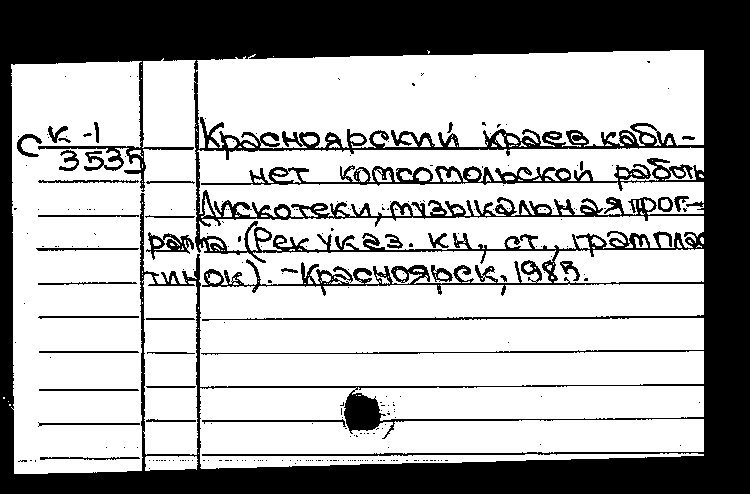 С К-1
3535
Красноярский краев. каби-
нет комсомольской работы
Дискотеки, музыкальная прог-
рамма: (Рек указ. кн., ст., грамплас
тинок). - Красноярск, 1985.